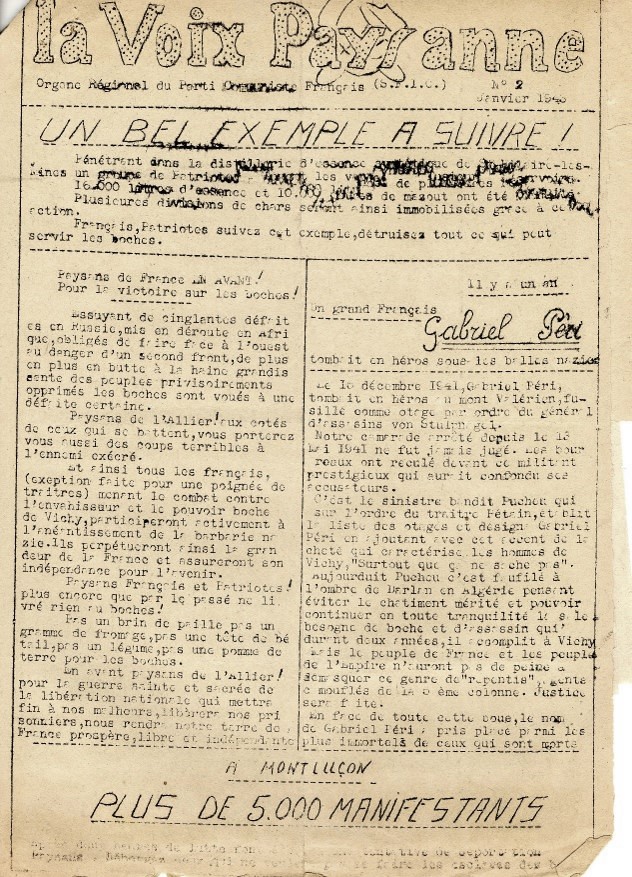 la Voix Paysanne
Organe Régional du Parti Communiste Français (S.F.I.C.) N° 2
Janvier 1943
UN BEL EXEMPLE A SUIVRE !
Pénétrent dans la distillerie d'essence de
Mines un groupe de Patriotes les de
16.000 litres d'essence et 10.000 de mazout ont été
Plusieures divisions de chars seront ainsi immobilisées grace à cette
action.
Français, Patriotes suivez cet exemple, détruisez tout ce qui peut
servir les boches.
Paysans de France EN AVANT!
Pour la victoire sur les boches!
Essuyant de cinglantes défait
es en Russie, mis en déroute en Afri
que, obligés de faire face à l'ouest
au danger d'un second front, de plus
en plus en butte à la haine grandis
sante des peuples privisoirements
opprimés les boches sont voués à une
défaite certaine.
Paysans de l'Allier! aux cotés
de ceux qui se battent, vous porterez
vous aussi des coups terribles à
l'ennemi exécré.
Et ainsi tous les français,
(exeption faite pour une poignée de
traitres) menant le combat contre
l'envahisseur et le pouvoir boche
de Vichy, participeront activement à
l'anéantissement de la barbarie na
zie. Ils perpétueront ainsi la gran
deur de la France et assureront son
indépendance pour l'avenir.
Paysans Français et Patriotes!
plus encore que par le passé ne li
vré rien au boches!
Pas un brin de paille, pas un
gramme de fromage, pas une tête de bé
tail, pas un légume, pas une pomme de
terre pour les boches.
En avant paysans de l'Allier!
pour la guerre sainte et sacrée de
la libération nationale qui mettra
fin à nos malheurs, libérera nos pri
sonniers, nous rendra notre terre de
France prospère, libre et indépendante
Il y a un an
un grand Français
Gabriel Péri
tombait en héros sous les balles nazies
Le 15 décembre 1941, Gabriel Péri,
tombait en héros au mont Valérien, fu-
sillé comme otage par ordre du général
d'assassins von Stulpnagel.
Notre camarade arrêté depuis le 18
Mai 1941 ne fut jamais jugé. Les bour
reaux ont reculé devant ce militant
prestigieux qui aurait confondu ses
accusateurs.
C'est le sinistre bandit Pucheu qui
sur l'ordre du traître Pétain, établit
la liste des otages et désigna Gabriel
Péri en ajoutant avec cet accent de la
cheté qui caractérise les hommes de
Vichy, "Surtout que ça ne sache pas".
Aujourduit Pucheu c'est faufilé à
l'ombre de Darlan en Algérie pensant
éviter le chatiment mérité et pouvoir
continuer en toute tranquilité la sale
besogne de boche et d'assassin qui'
durant deux années, il accomplit à Vichy
Mais le peuple de France et les peuple
de l'Empire n'auront pas de peine à
démasquer ce genre de "repentis",
mouflés de la 5 ème colonne. Justice
sera faite.
En face de toute cette boue, le nom
de Gabriel Péri a pris place parmi les
plus immortels de ceux qui sont morts
A MONTLUÇON
PLUS DE 5.000 MANIFESTANTS